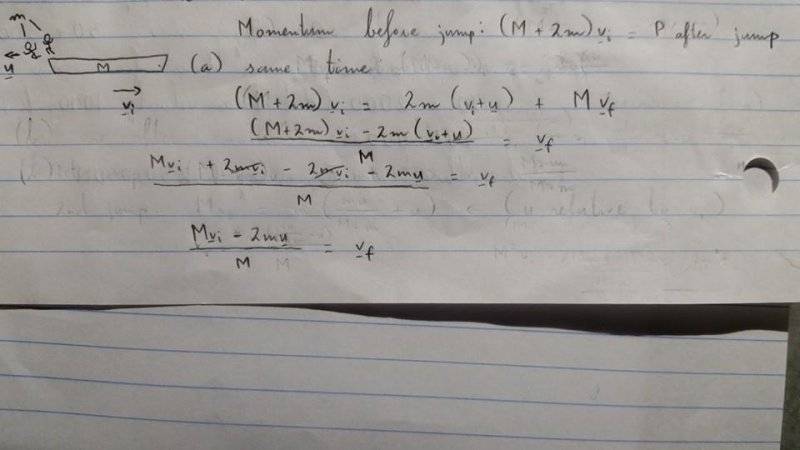 m
Momentum before jump: (M + 2m) v̲i = P after jump
u̲
M
(a) same time
v̲i
(M + 2m) v̲i = 2m (v̲i + u̲) + M v̲f
(M+2m) v̲i - 2m (v̲i + u̲) / M = v̲f
Mv̲i + 2mv̲i - 2mv̲i - 2mu̲ / M = v̲f
Mv̲i - 2mu̲ / M = v̲f